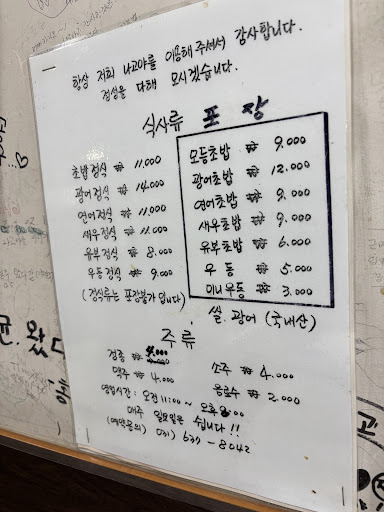 항상 저희 나고야를 이용해 주셔서 감사합니다.
정성을 다해 모시겠습니다.
식사류 포장
초밥정식 ₩ 11.000
광어정식 ₩ 14.000
연어정식 ₩ 11.000
새우정식 ₩ 11.000
유부정식 ₩ 8.000
우동정식 ₩ 9.000
(정식류는 포장불가입니다)
모듬초밥 ₩ 9.000
광어초밥 ₩ 12.000
연어초밥 ₩ 9.000
새우초밥 ₩ 9.000
유부초밥 ₩ 6.000
우동 ₩ 5.000
미니우동 ₩ 3.000
쌀. 광어 (국내산)
주류
검종 ₩
맥주 ₩ 4.000
소주 ₩ 4.000
음료수 ₩ 2.000
영업시간: 오전 11:00 ~ 오후
매주 일요일은 쉽니다!!
(예약문의) 031) 637-8042
왔다